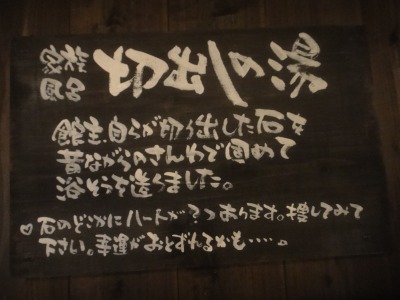 家族
風呂
の湯
館主自らが切り出した石を
昔ながらのさんわで固めて
浴そうを造りました。
♡石のどこかにハートが3つあります。捜してみて
下さい。幸運がおとずれるかも……。